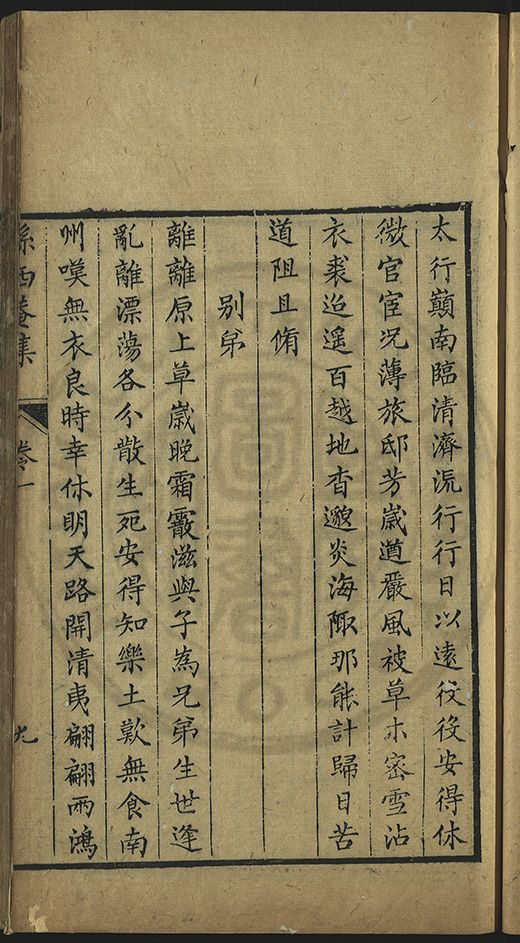 太行顛南臨清濟流行行日以遠役役安得休
微官宦况薄旅邸芳歲遒嚴風被草木密雪沾
衣裘迢遥百越地杳邈炎海陬那能計歸日苦
道阻且脩
別弟
離離原上草歲晚霜霰滋與子爲兄弟生世逢
亂離漂蕩各分散生死安得知樂土歎無食南
州嘆無衣良時幸休明天路開清夷翩翩兩鴻
孫西菴集 卷一 九